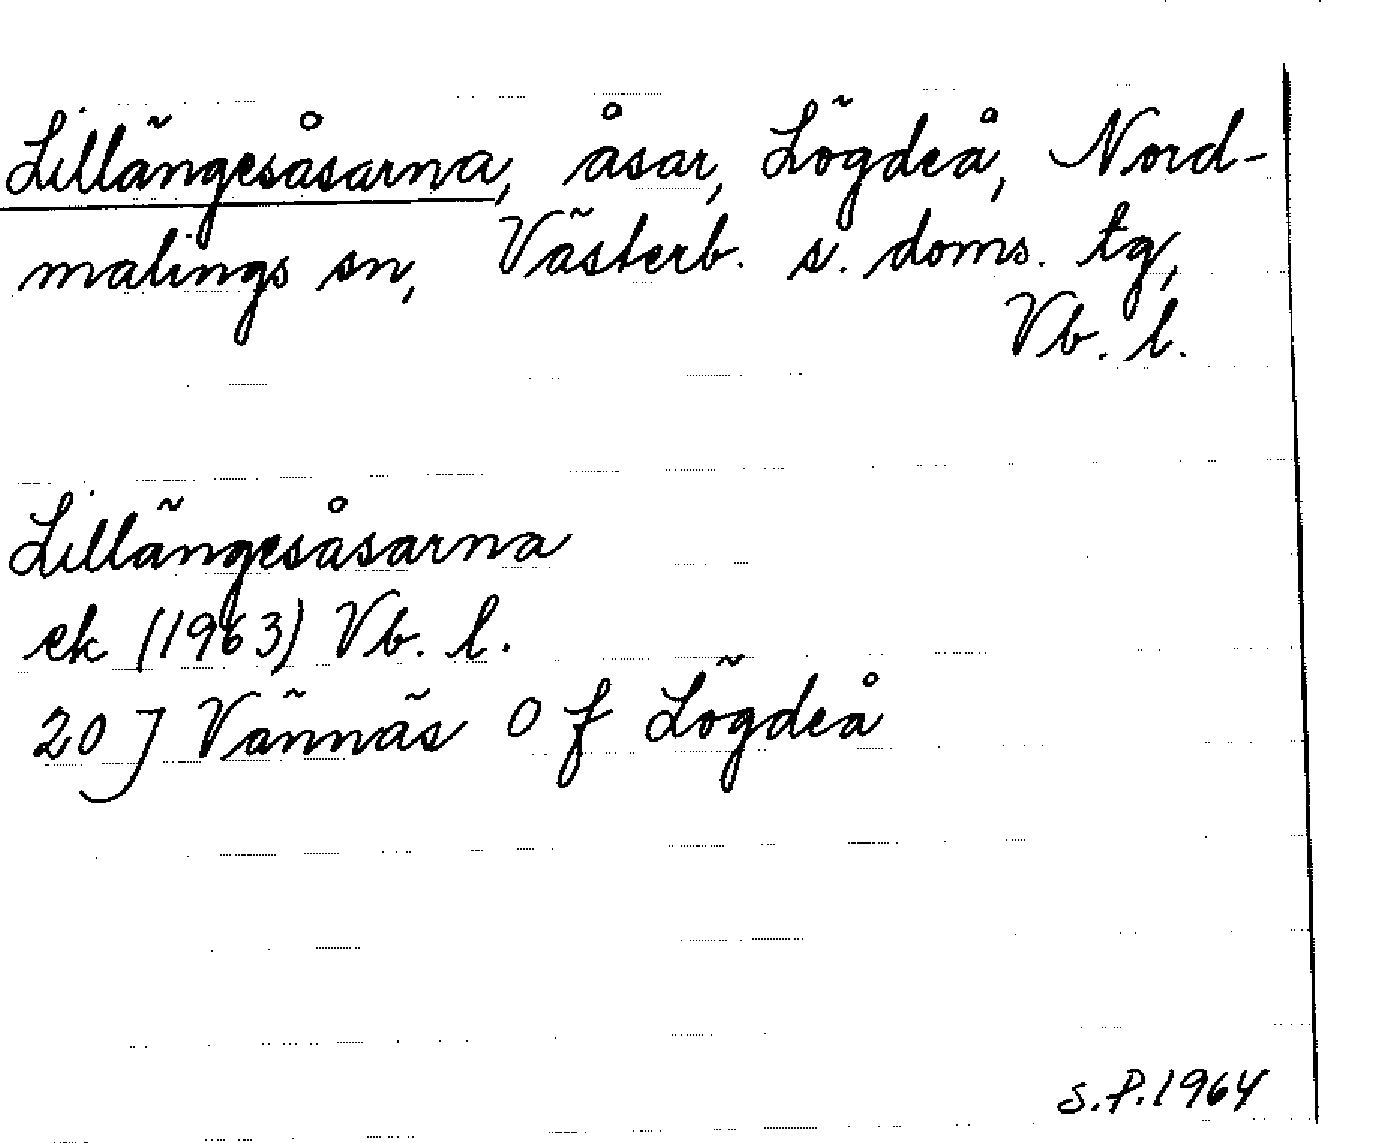 Lillängesåsarna, åsar, Lögdeå, Nord-
malings sn, Västerb. s. doms. tg,
Vb. l.
Lillängesåsarna
ek (1963) Vb. l.
20 J Vännäs O f Lögdeå
S.P.1964